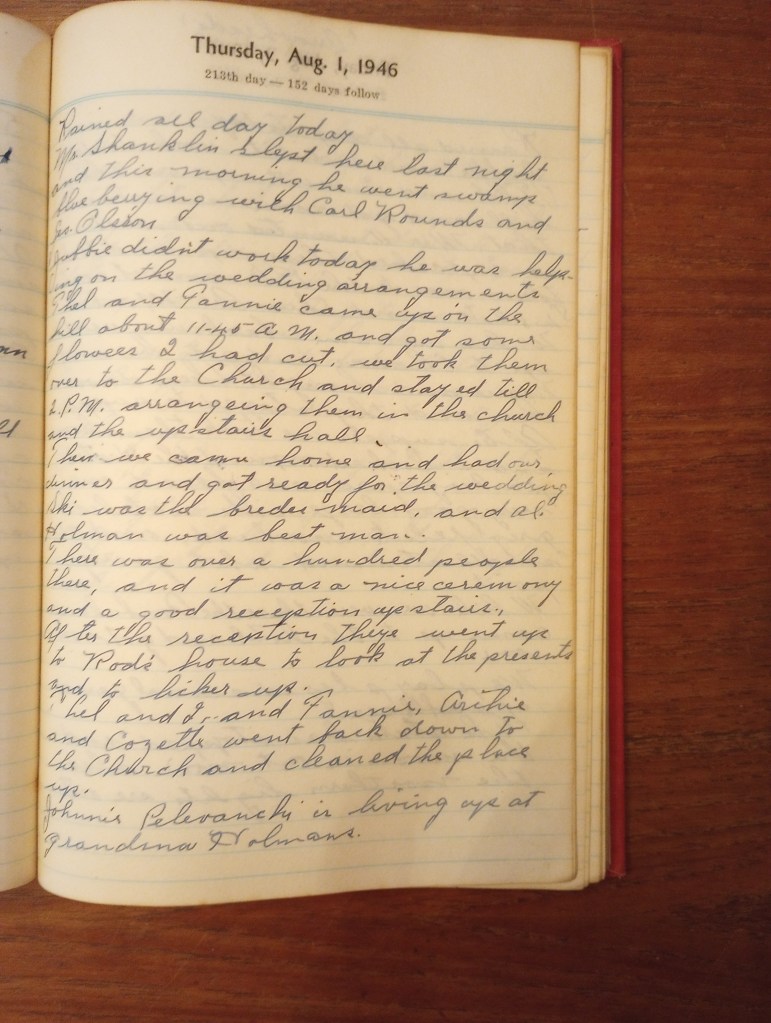 Thursday, Aug. 1, 1946
213th day — 152 days follow
Rained all day today
Mr. Shanklin slept here last night
and this morning he went swamp
blue berrying with Carl Rounds and
Olsson
Bubbie didn't work today he was help-
ing on the wedding arrangements
Thel and Fannie came up on the
hill about 11-45 A M. and got some
flowers I had cut. we took them
over to the Church and stayed till
2.P.M. arrangeing them in the church
and the upstairs hall
Then we came home and had our
dinner and got ready for the wedding
Ski was the brides maid, and Al.
Holman was best man.
There was over a hundred people
there, and it was a nice ceremony
and a good reception upstairs.
After the reception they went up
to Rod's house to look at the presents
and to licker up.
Thel and I, and Fannie, Archie
and Cozette went back down to
the Church and cleaned the place
up.
Johnnie Pelevanchi is living up at
Grandma Holmans.